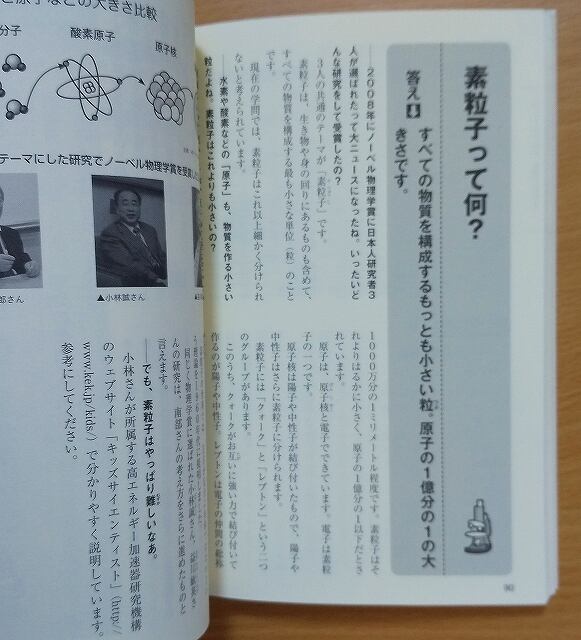 素粒子って何？
答え
すべての物質を構成するもっとも小さい粒。原子の1億分の1の大
きさです。
――2008年にノーベル物理学賞に日本人研究者3
人が選ばれたって大ニュースになったね。いったいど
んな研究をして受賞したの？
3人の共通のテーマが「素粒子」です。
素粒子は、生き物や身の回りにあるものも含めて、
すべての物質を構成する最も小さな単位（粒）のこと
です。
現在の学問では、素粒子はこれ以上細かく分けられ
ないと考えられています。
――水素や酸素などの「原子」も、物質を作る小さい
粒だよね。素粒子はこれよりも小さいの？
1000万分の1ミリメートル程度です。素粒子はそ
れよりはるかに小さく、原子の1億分の1以下だとさ
れています。
原子は、原子核と電子でできています。電子は素粒
子の一つです。
原子核は陽子や中性子が結び付いたもので、陽子や
中性子はさらに素粒子に分けられます。
素粒子には「クォーク」と「レプトン」という二つ
のグループがあります。
このうち、クォークがお互いに強い力で結び付いて
作るのが陽子や中性子、レプトンは電子の仲間の総称
原子などの大きさ比較
分子
酸素原子
原子核
テーマにした研究でノーベル物理学賞を受賞
郎さん
▲小林誠さん
同じく物理学賞に選ばれた小林誠さん、
んの研究は、南部さんの考え方をさらに進めたものと
言えます。
――でも、素粒子はやっぱり難しいなあ。
小林さんが所属する高エネルギー加速器研究機構
のウェブサイト「キッズサイエンティスト」（http://
www.kek.jp/kids/）で分かりやすく説明しています。
参考にしてください。